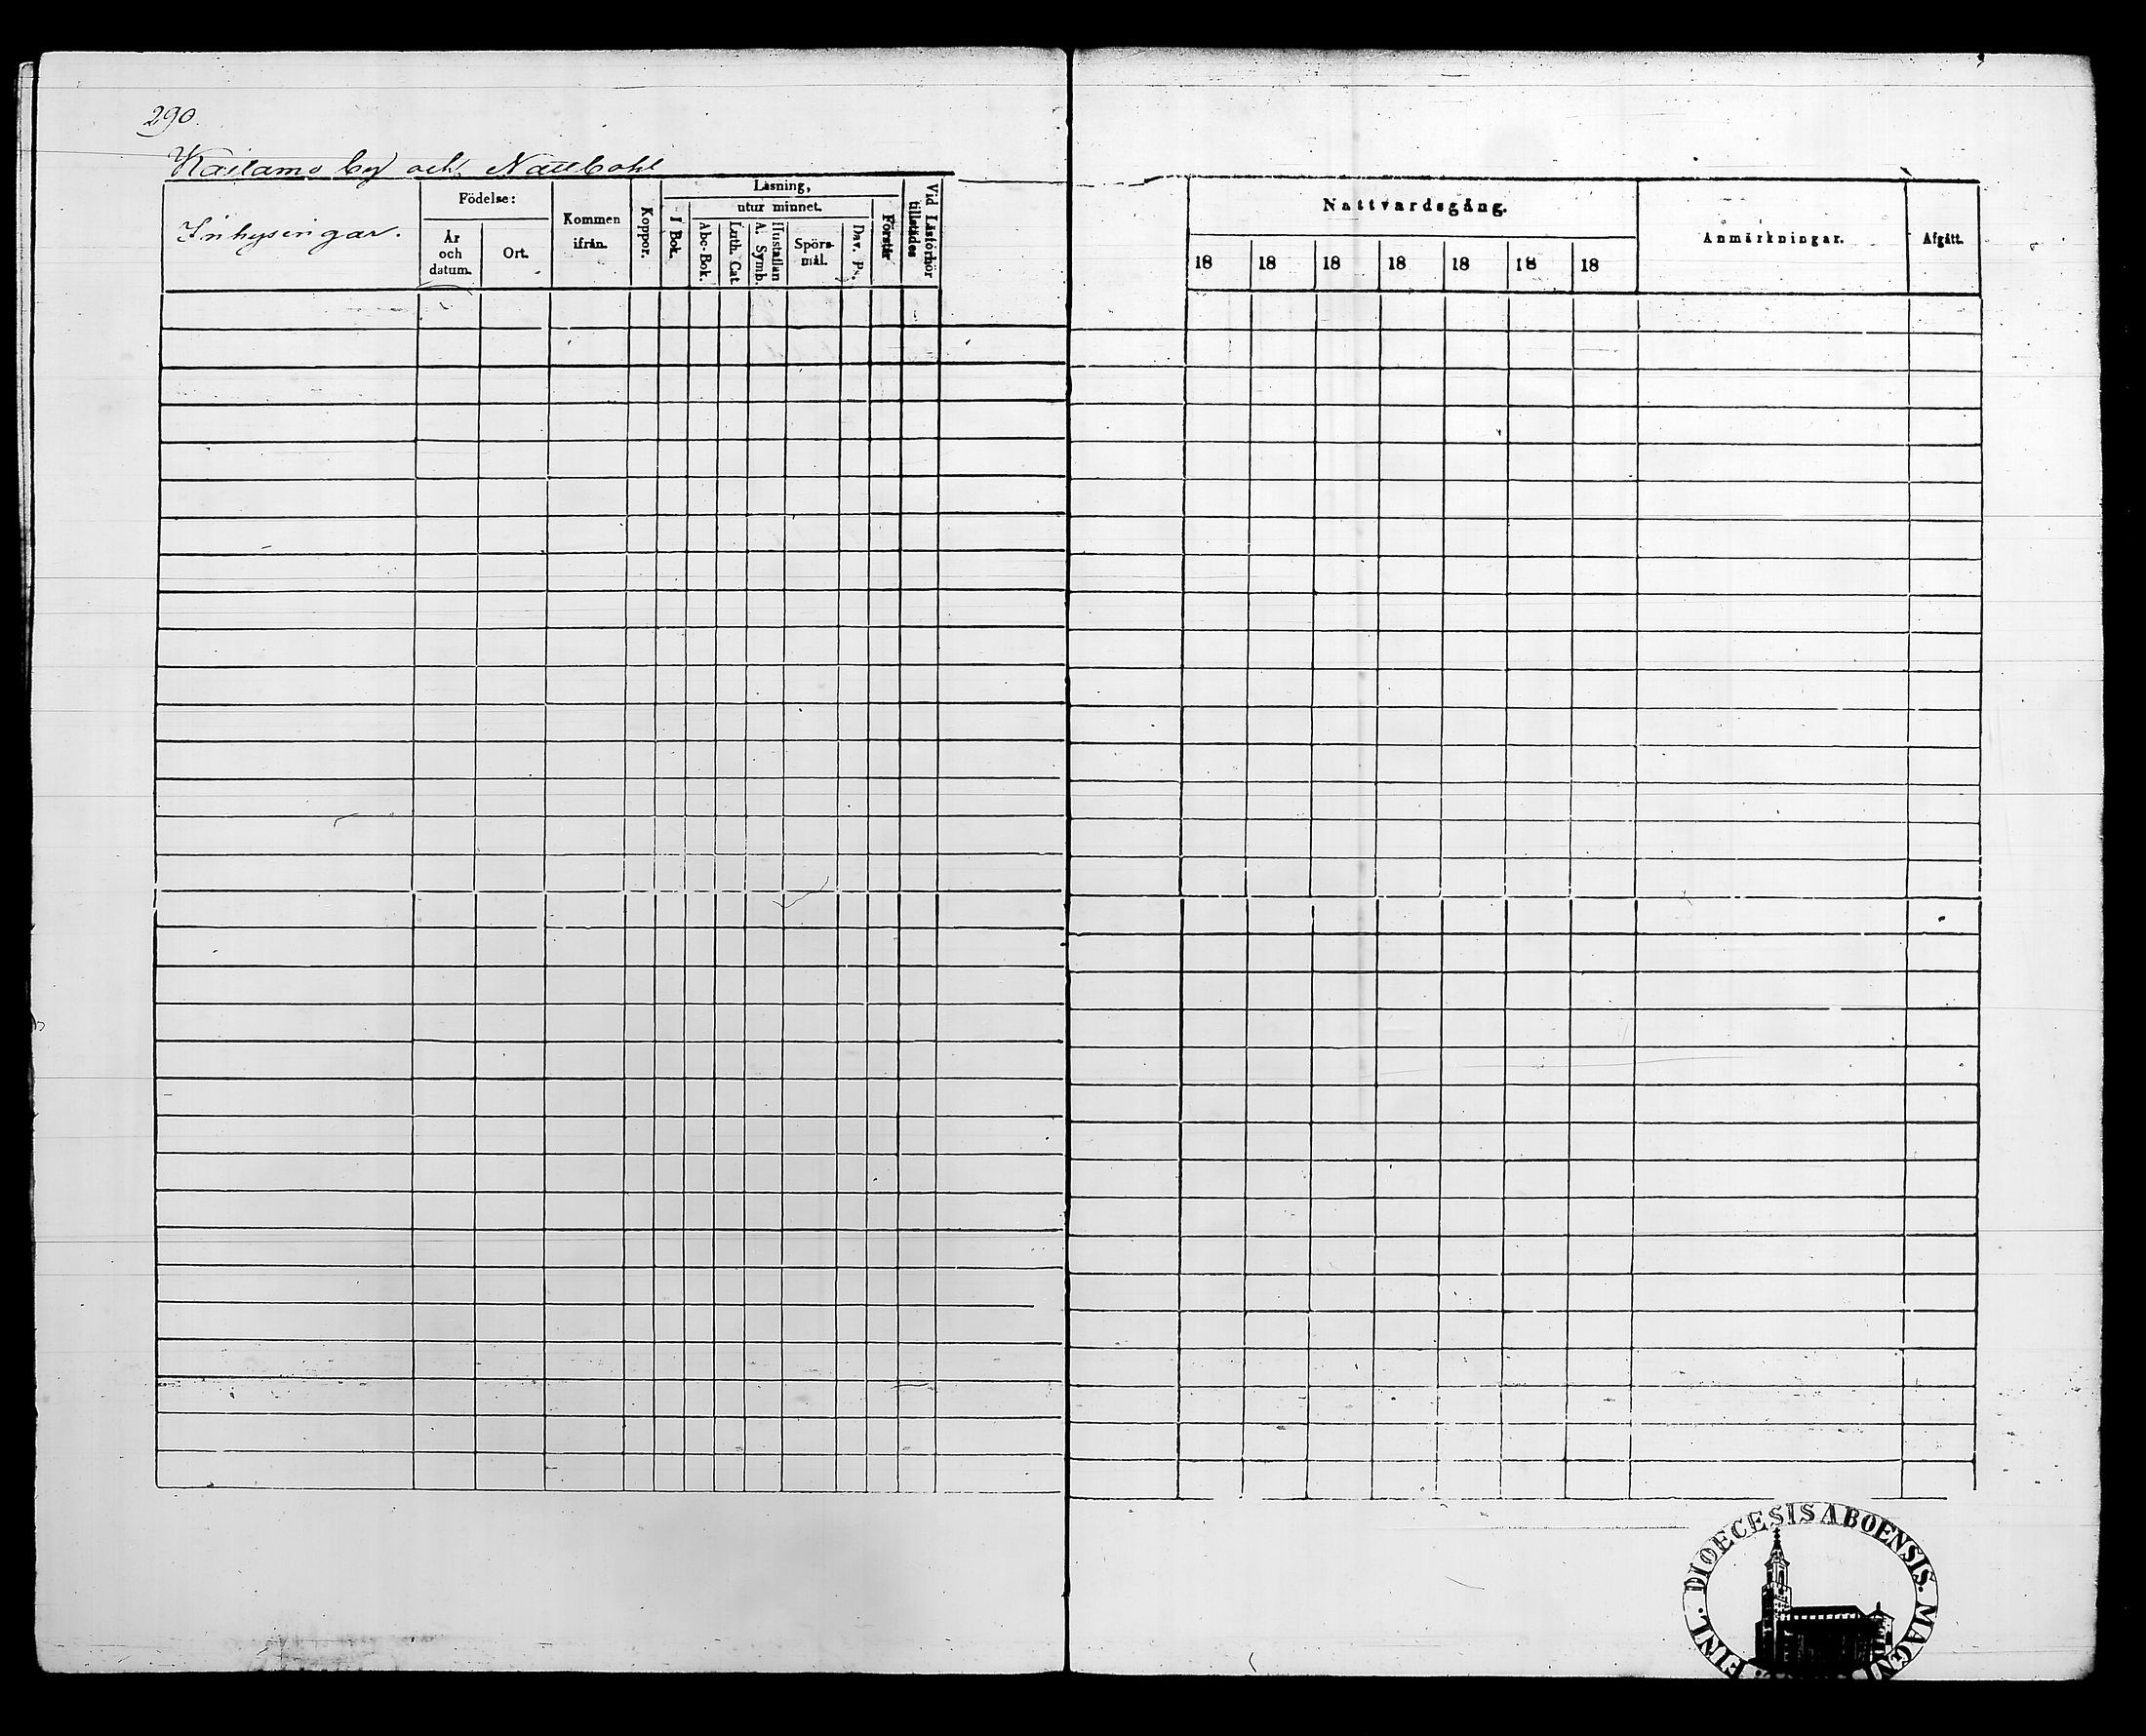 290.
Kailamo by och Nattbohl
Inhysingar.
Födelse:
År
och
datum.
Ort.
Kommen
ifrån.
Koppor.
Läsning,
I Bok.
utur minnet.
Abc-Bok.
Luth. Cat
Hustaflan
A. Symb.
Spörs-
mål.
Dav. Ps.
Förstår
Vid Läsförhör
tillstädes
Nattvardsgång.
18 18 18 18 18 18 18
Anmärkningar.
Afgått.
FINL. DIOECESIS ABOENSIS. MAGNI